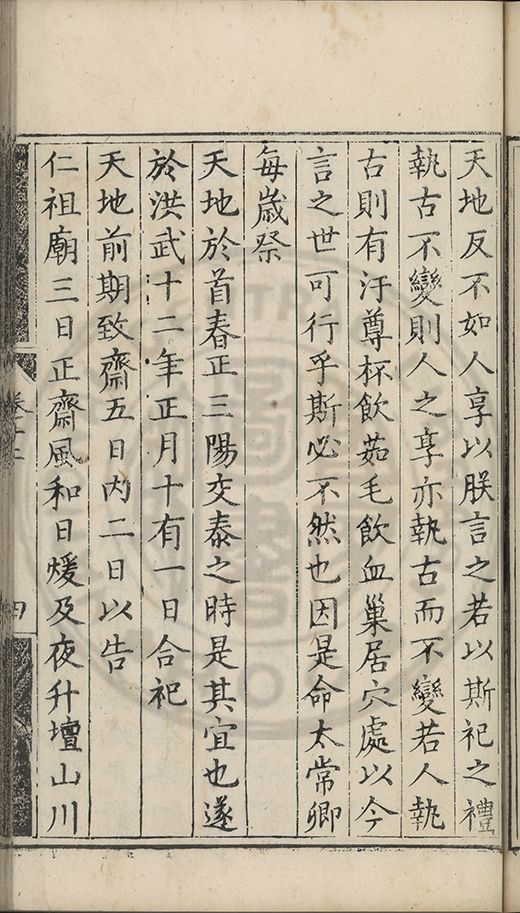 天地反不如人享以朕言之若以斯祀之禮
執古不變則人之享亦執古而不變若人執
古則有汙尊杯飲茹毛飲血巢居穴處以今
言之世可行乎斯必不然也因是命太常卿
每歲祭
天地於首春正三陽交泰之時是其宜也遂
於洪武十二年正月十有一日合祀
天地前期致齋五日內二日以告
仁祖廟三日正齋風和日煖及夜升壇山川
四